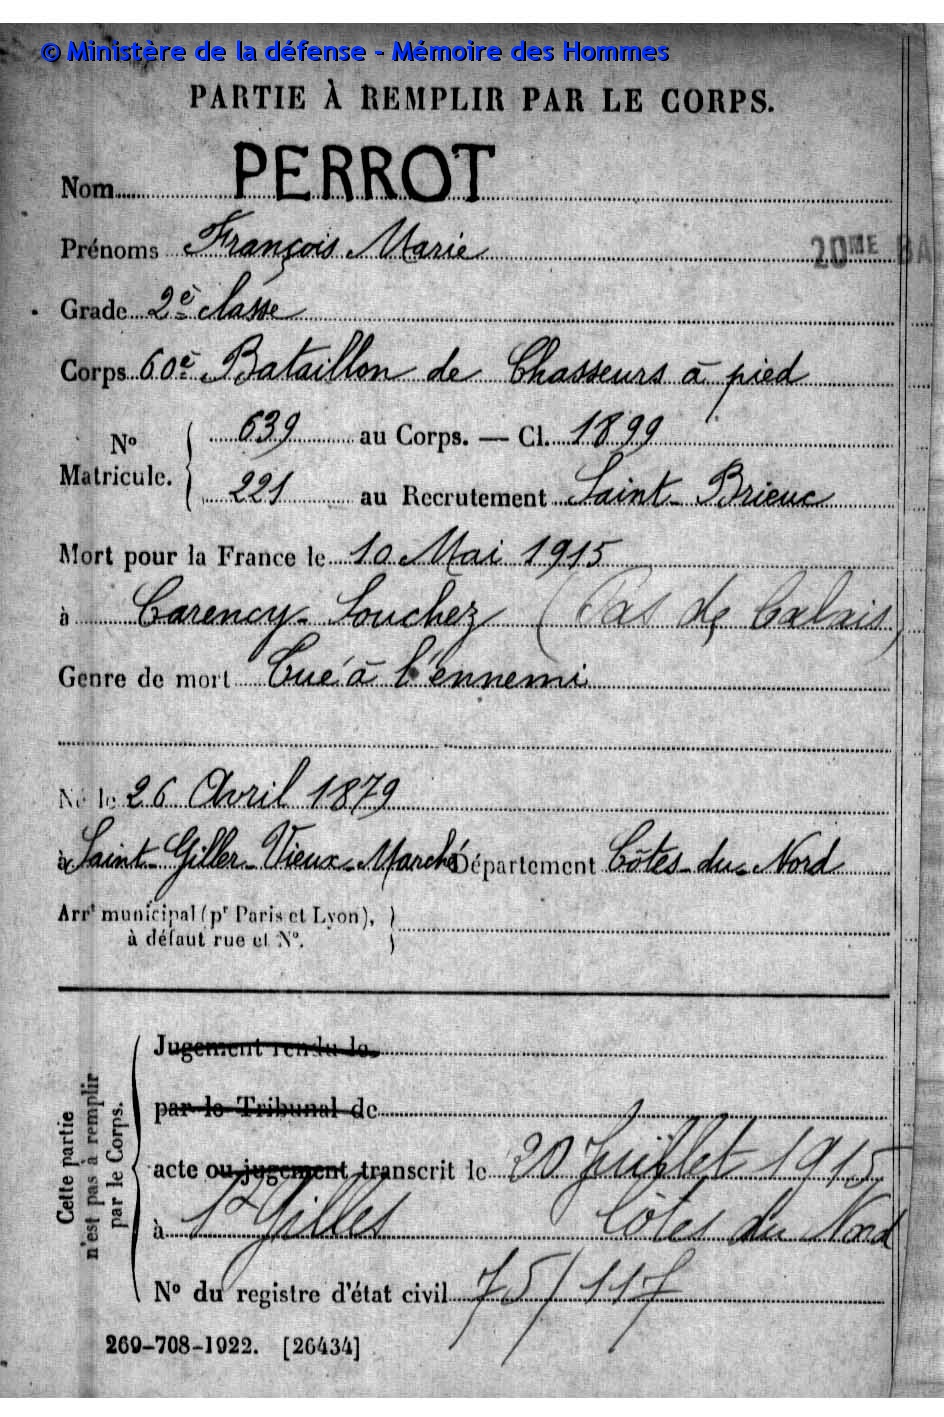 © Ministère de la défense - Mémoire des Hommes
PARTIE À REMPLIR PAR LE CORPS.
Nom PERROT
Prénoms François Marie
20ME BA
Grade 2e classe
Corps 60e Bataillon de Chasseurs à pied
No Matricule. { 639 au Corps. — Cl. 1899
221 au Recrutement Saint-Brieuc
Mort pour la France le 10 Mai 1915
à Carency-Souchez (Pas de Calais)
Genre de mort Tué à l'ennemi
Né le 26 Avril 1879
à Saint-Giller-Vieux-Marché Département Côtes-du-Nord
Arrt municipal (pr Paris et Lyon), }
à défaut rue et No.
Cette partie n'est pas à remplir par le Corps.
Jugement rendu le
par le Tribunal de
acte ou jugement transcrit le 20 Juillet 1915
à St Gilles Côtes du Nord
No du registre d'état civil 75/117
269-708-1922. [26434]